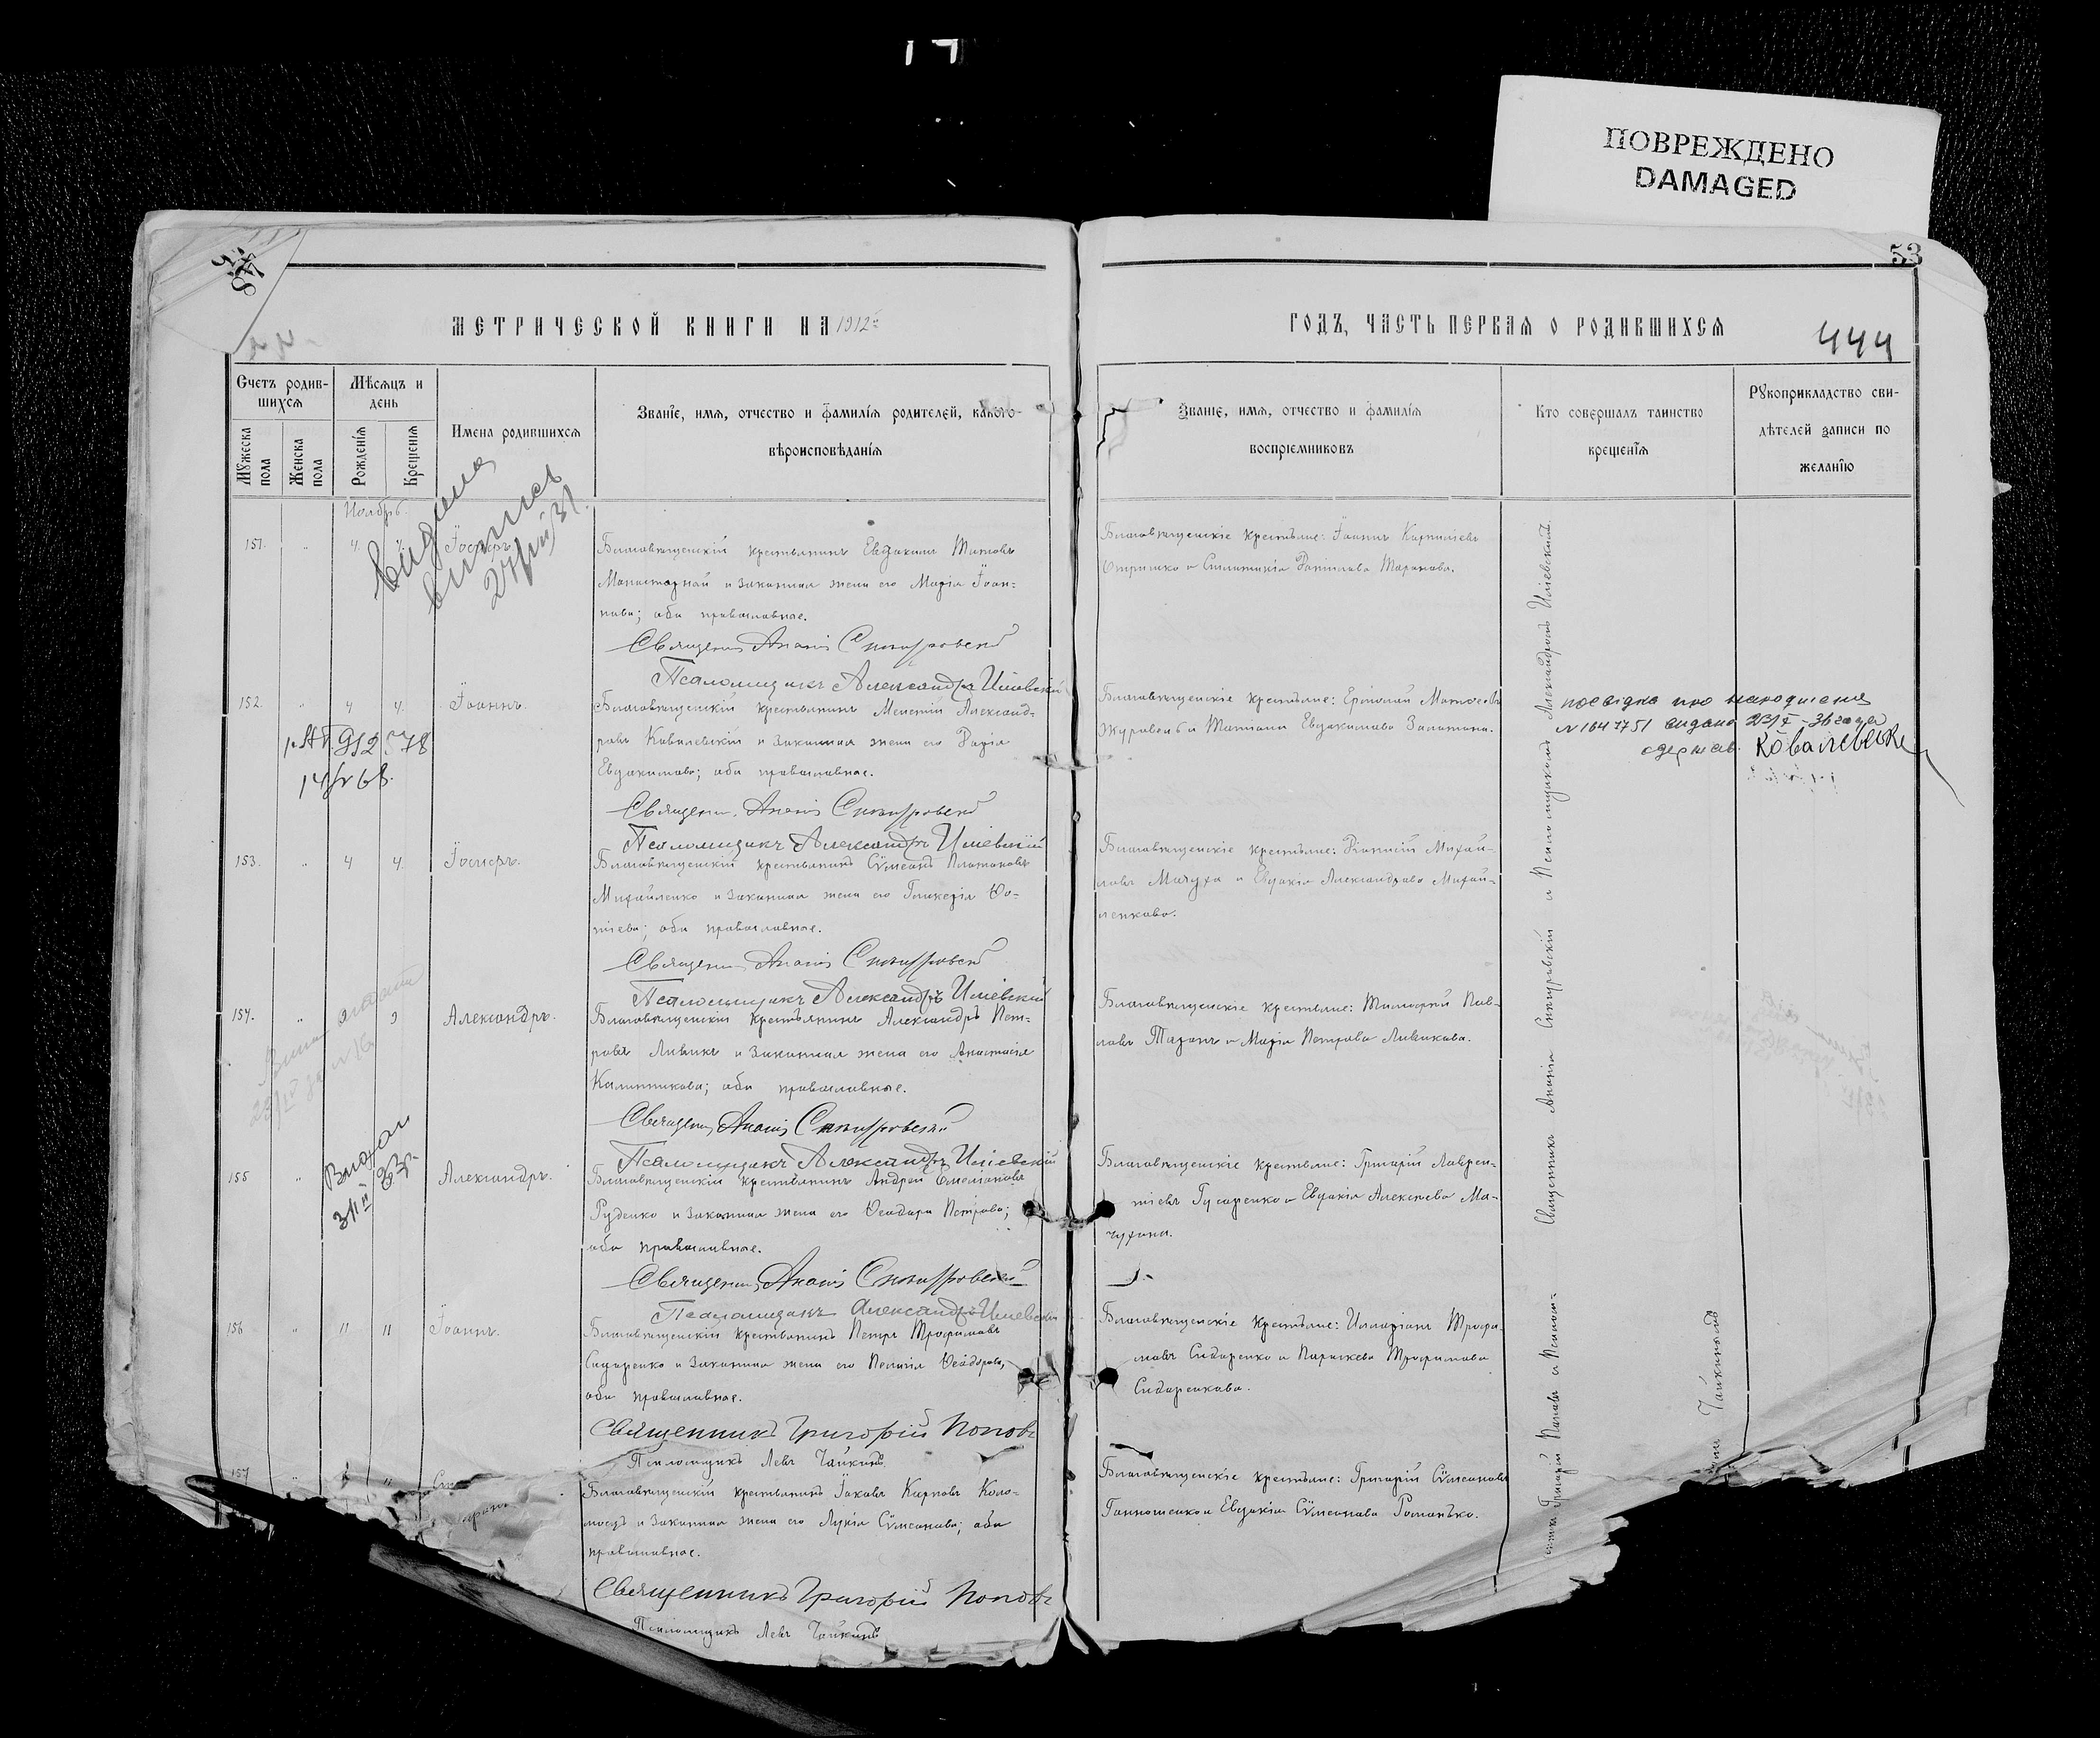 ПОВРЕЖДЕНО
DAMAGED
53
МЕТРИЧЕСКОЙ КНИГИ НА 1912й
ГОДЪ, ЧАСТЬ ПЕРВАЯ О РОДИВШИХСЯ
444
Счетъ родив-
шихся
Мѣсяцъ и
день
Мужеска
пола
Женска
пола
Рожденія
Крещенія
Имена родившихся
Званіе, имя, отчество и фамилія родителей, какого
вѣроисповѣданія
Званіе, имя, отчество и фамилія
воспріемниковъ
Кто совершалъ таинство
крещенія
Рукоприкладство сви-
дѣтелей записи по
желанію
Ноябрь.
151. " 4. 4.
Благовѣщенскій крестьянинъ Евдокимъ Титовъ
Монастарный и законная жена его Марія Іоан-
нова; оба православные.
Священникъ Ананій
Псаломщикъ Александръ Иліевскій
Благовѣщенскіе крестьяне: Іоаннъ
и Данилова Таранова.
152. " 4 4. Іоаннъ.
Благовѣщенскій крестьянинъ Мелетій Александ-
ровъ Ковалевскій и законная жена его Дарія
Евдокимова; оба православные.
Священникъ Ананій
Псаломщикъ Александръ Иліевскій
Благовѣщенскіе крестьяне: Матѳеевъ
Журавель и Татіана Евдокимова
посвідка про народження
№ 1647751 видана
Ковалевск
14/IV 68.
153. " 4 4. Іосифъ.
Благовѣщенскій крестьянинъ Сѵмеонъ Платоновъ
Михайленко и законная жена его Гликерія Ѳо-
тіева; оба православные.
Священникъ Ананій
Псаломщикъ Александръ Иліевскій
Благовѣщенскіе крестьяне: Діонисій Михай-
ловъ Мачуха и Евдокія Александрова Михай-
ленкова.
154. " 9 9 Александръ.
Благовѣщенскій крестьянинъ Александръ Пет-
ровъ Ливикъ и законная жена его Анастасія
Каллиникова; оба православные.
Священникъ Ананій
Псаломщикъ Александръ Иліевскій
Благовѣщенскіе крестьяне: Тимоѳей Пав-
ловъ Таранъ и Марія Петрова Ливикова.
155 " Александръ.
Благовѣщенскій крестьянинъ Андрей Емеліановъ
Руденко и законная жена его Ѳеодора Петрова;
оба православные.
Священникъ Ананій
Псаломщикъ Александръ Иліевскій
Благовѣщенскіе крестьяне: Григорій Лаврен-
тіевъ Гусаренко и Евдокія Алексѣева Ма-
чухина.
156 " 11 11 Іоаннъ.
Благовѣщенскій крестьянинъ Петръ Трофимовъ
Сидоренко и законная жена его Пелагія Ѳеодорова,
оба православные.
Священникъ Григорій Поповъ
Псаломщикъ Левъ Чайкинъ
Благовѣщенскіе крестьяне: Илларіонъ Трофи-
мовъ Сидоренко и Параскева Трофимова
Сидоренкова.
157 "
Благовѣщенскій крестьянинъ Іаковъ Карповъ Коло-
моецъ и законная жена его Лукія Сѵмеонова; оба
православные.
Священникъ Григорій Поповъ
Псаломщикъ Левъ Чайкинъ
Благовѣщенскіе крестьяне: Григорій Сѵмеоновъ
и Евдокія Сѵмеонова Романько.
Священникъ Ананій и Псаломщикомъ Александромъ Иліевскимъ.
Григорій Поповъ и Псалом-
Чайкинымъ